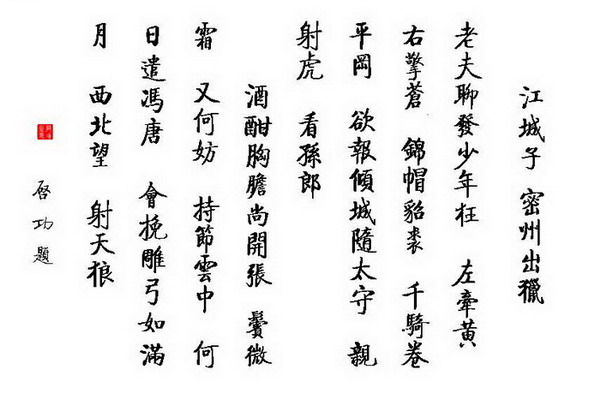 江城子 密州出獵
老夫聊發少年狂 左牽黃
右擎蒼 錦帽貂裘 千騎卷
平岡 欲報傾城隨太守 親
射虎 看孫郎
酒酣胸膽尚開張 鬢微
霜 又何妨 持節雲中 何
日遣馮唐 會挽雕弓如滿
月 西北望 射天狼
啓功題